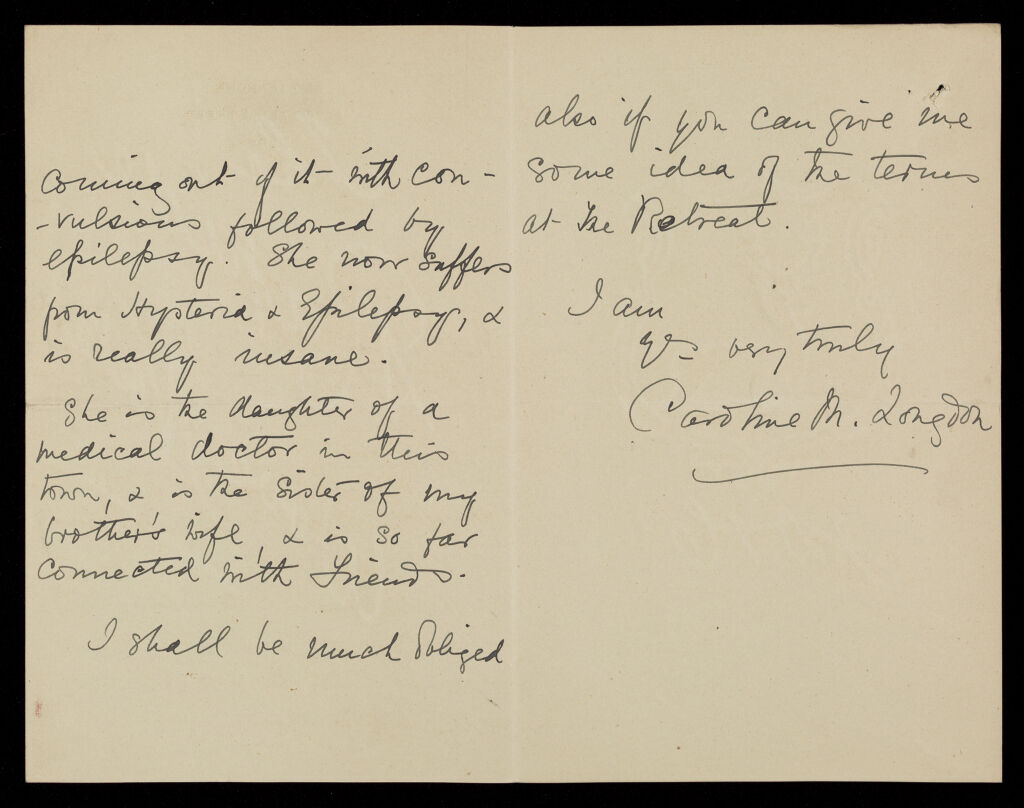 coming out of it with con-
-vulsions followed by
epilepsy. She now suffers
from Hysteria & Epilepsy, &
is really insane.
She is the daughter of a
medical doctor in this
town, & is the sister of my
brother's wife, & is so far
connected with Friends.
I shall be much obliged
also if you can give me
some idea of the terms
at the Retreat.
I am
yrs very truly
Caroline M. Longdon